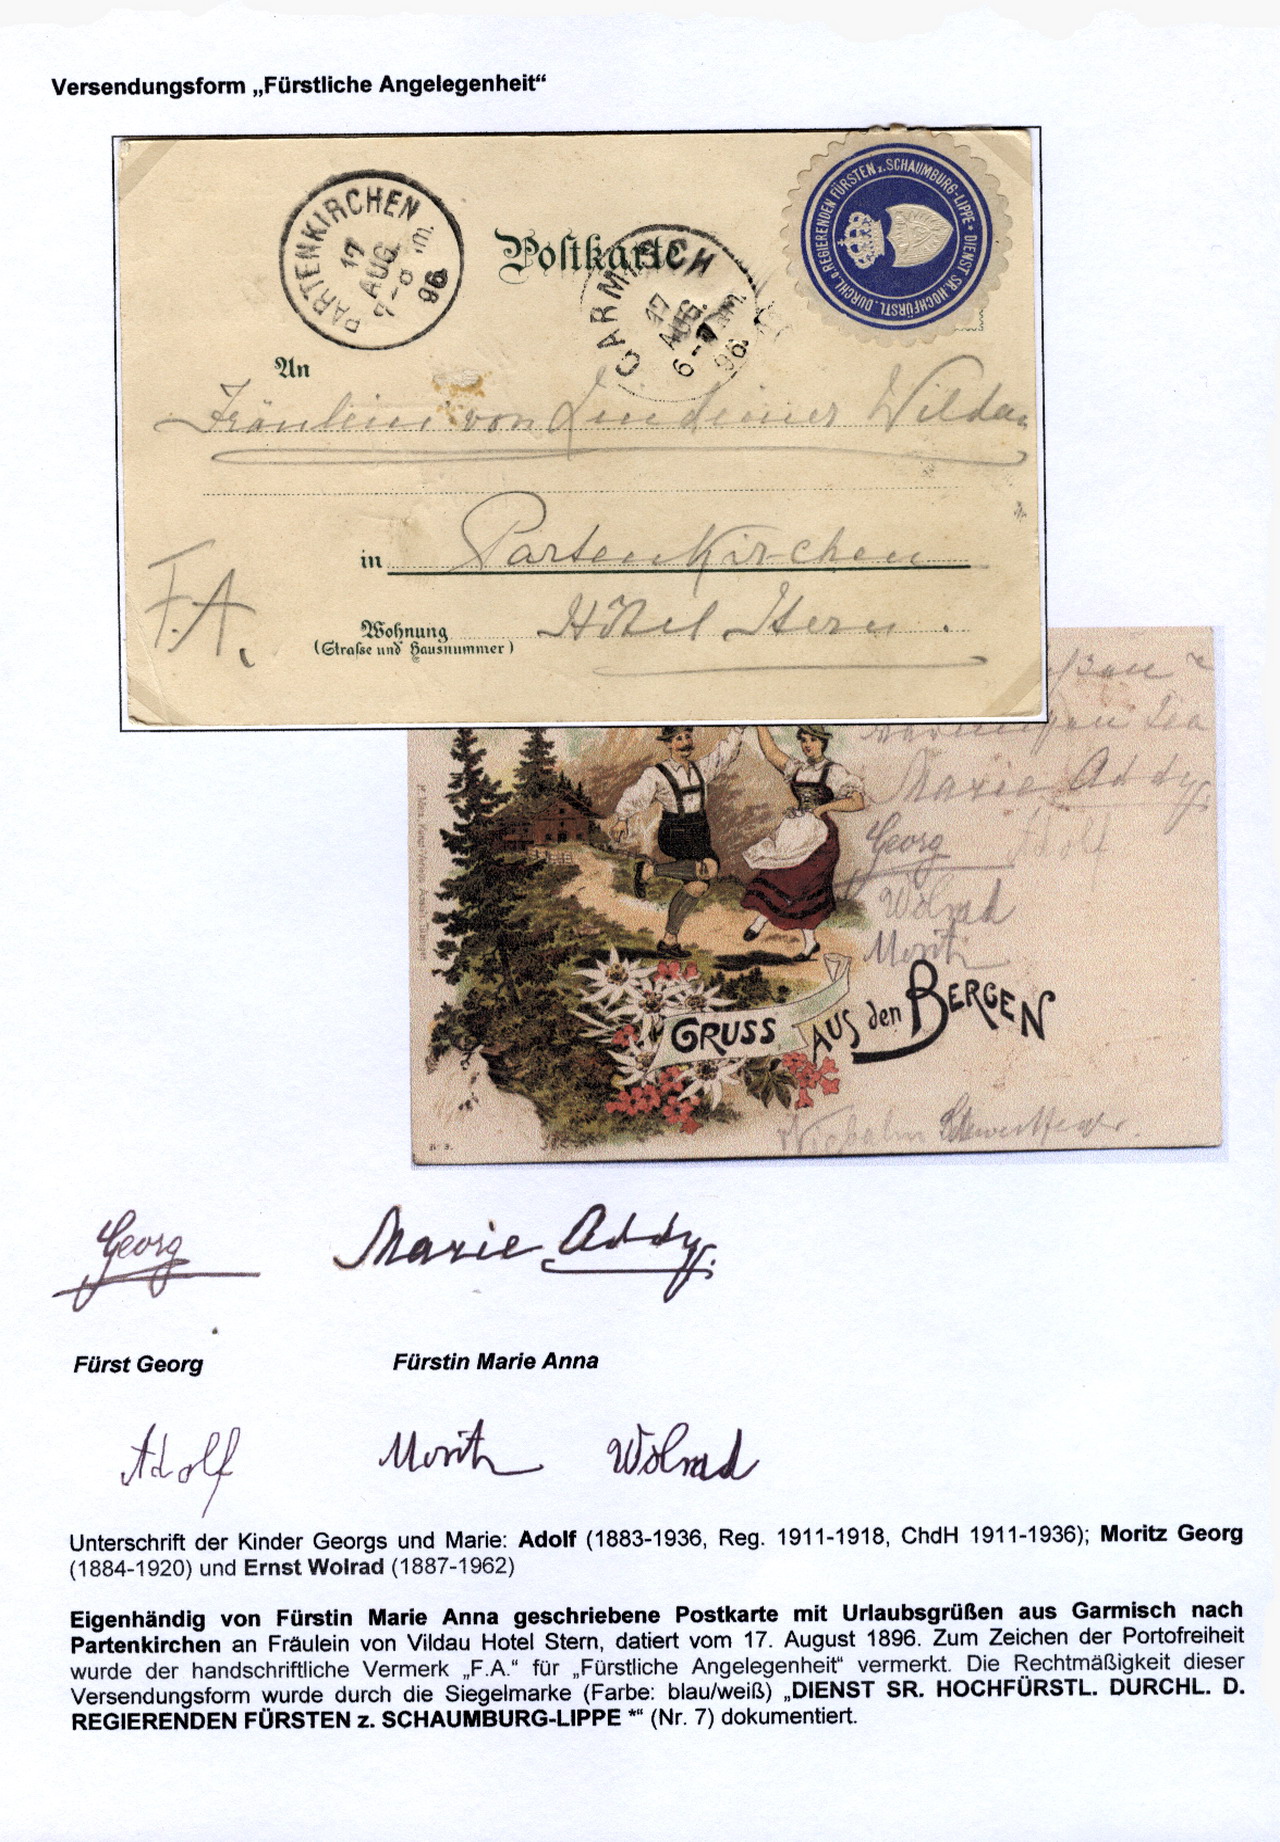 Versendungsform „Fürstliche Angelegenheit“
PARTENKIRCHEN
17
AUG.
7-8 m.
96
Postkarte
GARMISCH
17
AUG.
6-7 m.
96.
DIENST SR. HOCHFÜRSTL. DURCHL. D. REGIERENDEN FÜRSTEN z. SCHAUMBURG-LIPPE *
An
Fräulein von Lindeiner Wildau
in Partenkirchen
F.A.
Wohnung Hôtel Stern.
(Straße und Hausnummer)
Marie Addy.
Georg Adolf
Wolrad
Moritz
GRUSS AUS den BERGEN
Georg Marie Addy.
Fürst Georg Fürstin Marie Anna
Adolf Moritz Wolrad
Unterschrift der Kinder Georgs und Marie: Adolf (1883-1936, Reg. 1911-1918, ChdH 1911-1936); Moritz Georg
(1884-1920) und Ernst Wolrad (1887-1962)
Eigenhändig von Fürstin Marie Anna geschriebene Postkarte mit Urlaubsgrüßen aus Garmisch nach
Partenkirchen an Fräulein von Vildau Hotel Stern, datiert vom 17. August 1896. Zum Zeichen der Portofreiheit
wurde der handschriftliche Vermerk „F.A.“ für „Fürstliche Angelegenheit“ vermerkt. Die Rechtmäßigkeit dieser
Versendungsform wurde durch die Siegelmarke (Farbe: blau/weiß) „DIENST SR. HOCHFÜRSTL. DURCHL. D.
REGIERENDEN FÜRSTEN z. SCHAUMBURG-LIPPE *“ (Nr. 7) dokumentiert.